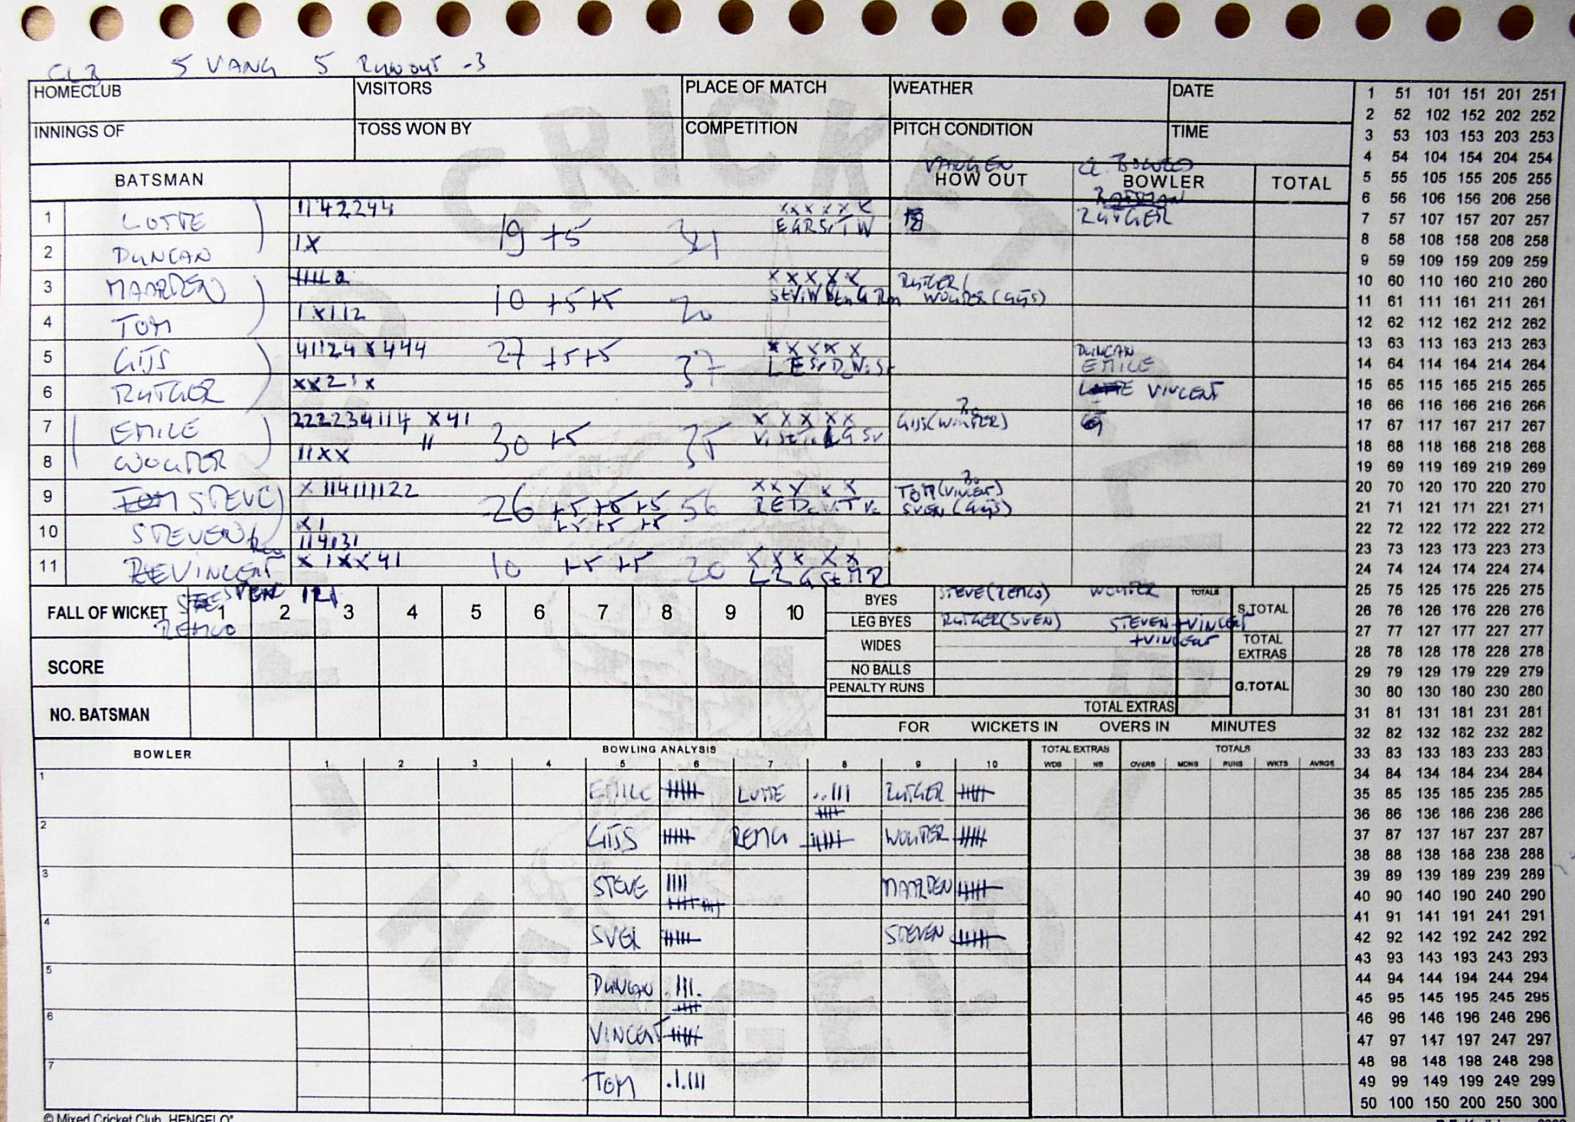 CL.B 5 VANG 5 RUNOUT -3
HOMECLUB VISITORS PLACE OF MATCH WEATHER DATE
INNINGS OF TOSS WON BY COMPETITION PITCH CONDITION TIME
VANGEN CL. BOWLED
BATSMAN HOW OUT BOWLER TOTAL
1 LOTTE 1142244 x x x x x RUTGER
19 +5 EGRSTW
2 DUNCAN 1X
3 MAARDEN x x x x x RUTGER/
10 +5+5 20 WOUTER (GIJS)
4 TOM 1X112
5 GIJS 41124X444 x x x x x DUNCAN
27 +5+5 37 EMILE
6 RUTGER XX21X VINCENT
7 EMILE 222234114 X41 x x x x x GIJS (WOUTER)
30 +5 35
8 WOUTER 11XX
9 STEVE X 114111122 x x x x x TOM (VINCENT)
26 +5 +5 +5 56 SVEN (GIJS)
+5 +5 +5
10 STEVEN X1
114131
11 VINCENT X 1XX41 10 +5 +5 20 x x x x x
SVEN 121
REMCO
FALL OF WICKET 1 2 3 4 5 6 7 8 9 10
SCORE
NO. BATSMAN
BYES STEVE (REMCO) WOUTER TOTALS S.TOTAL
LEG BYES RUTGER (SVEN) STEVEN +VINCENT
WIDES +VINCENT TOTAL EXTRAS
NO BALLS
PENALTY RUNS G.TOTAL
TOTAL EXTRAS
FOR WICKETS IN OVERS IN MINUTES
BOWLER BOWLING ANALYSIS TOTAL EXTRAS TOTALS
1 2 3 4 5 6 7 8 9 10 WDS NB OVERS MDNS RUNS WKTS AVRGS
1 EMILE LOTTE RUTGER
2 GIJS REMCO WOUTER
3 STEVE MAARDEN
4 SVEN STEVEN
5 DUNCAN
6 VINCENT
7 TOM
© Mixed Cricket Club "HENGELO"
1 51 101 151 201 251
2 52 102 152 202 252
3 53 103 153 203 253
4 54 104 154 204 254
5 55 105 155 205 255
6 56 106 156 206 256
7 57 107 157 207 257
8 58 108 158 208 258
9 59 109 159 209 259
10 60 110 160 210 260
11 61 111 161 211 261
12 62 112 162 212 262
13 63 113 163 213 263
14 64 114 164 214 264
15 65 115 165 215 265
16 66 116 166 216 266
17 67 117 167 217 267
18 68 118 168 218 268
19 69 119 169 219 269
20 70 120 170 220 270
21 71 121 171 221 271
22 72 122 172 222 272
23 73 123 173 223 273
24 74 124 174 224 274
25 75 125 175 225 275
26 76 126 176 226 276
27 77 127 177 227 277
28 78 128 178 228 278
29 79 129 179 229 279
30 80 130 180 230 280
31 81 131 181 231 281
32 82 132 182 232 282
33 83 133 183 233 283
34 84 134 184 234 284
35 85 135 185 235 285
36 86 136 186 236 286
37 87 137 187 237 287
38 88 138 188 238 288
39 89 139 189 239 289
40 90 140 190 240 290
41 91 141 191 241 291
42 92 142 192 242 292
43 93 143 193 243 293
44 94 144 194 244 294
45 95 145 195 245 295
46 96 146 196 246 296
47 97 147 197 247 297
48 98 148 198 248 298
49 99 149 199 249 299
50 100 150 200 250 300